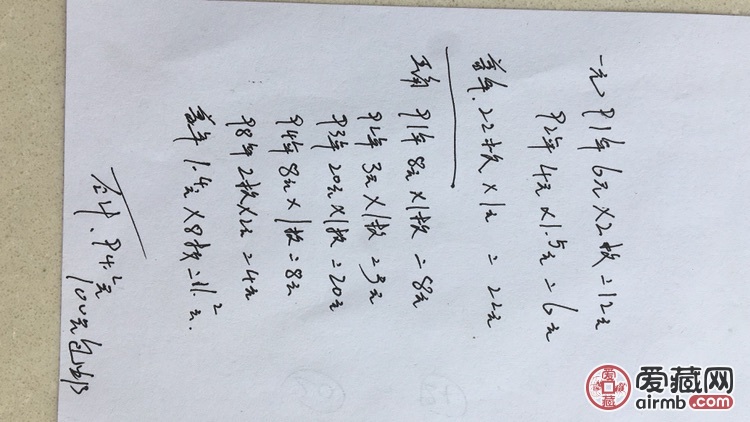 一元 91年 6元×2枚=12元
92年 4元×1.5元=6元
普年.22枚×1元=22元
五角 91年 8元×1枚=8元
92年 3元×1枚=3元
93年 20元×1枚=20元
94年 8元×1枚=8元
98年 2枚×2元=4元
普年 1.4元×8枚=11.2元.
合计.94.2元
100元包邮
爱藏网
airmb.com
爱藏